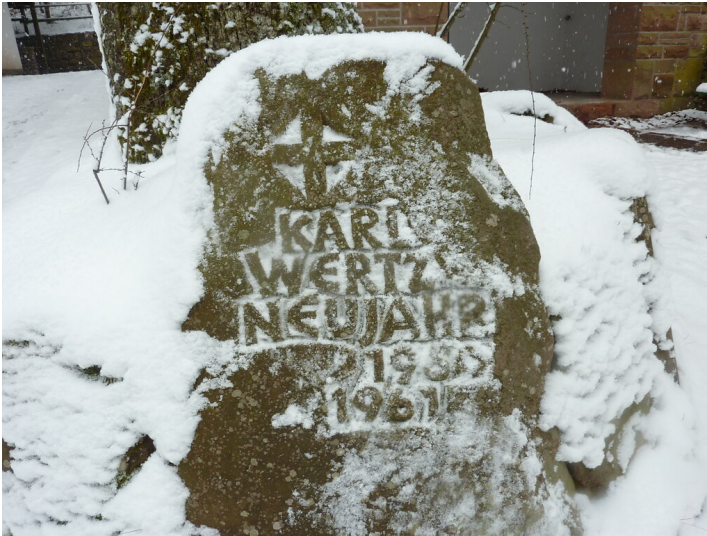 KARL
WERTZ
NEUJAHR
1961